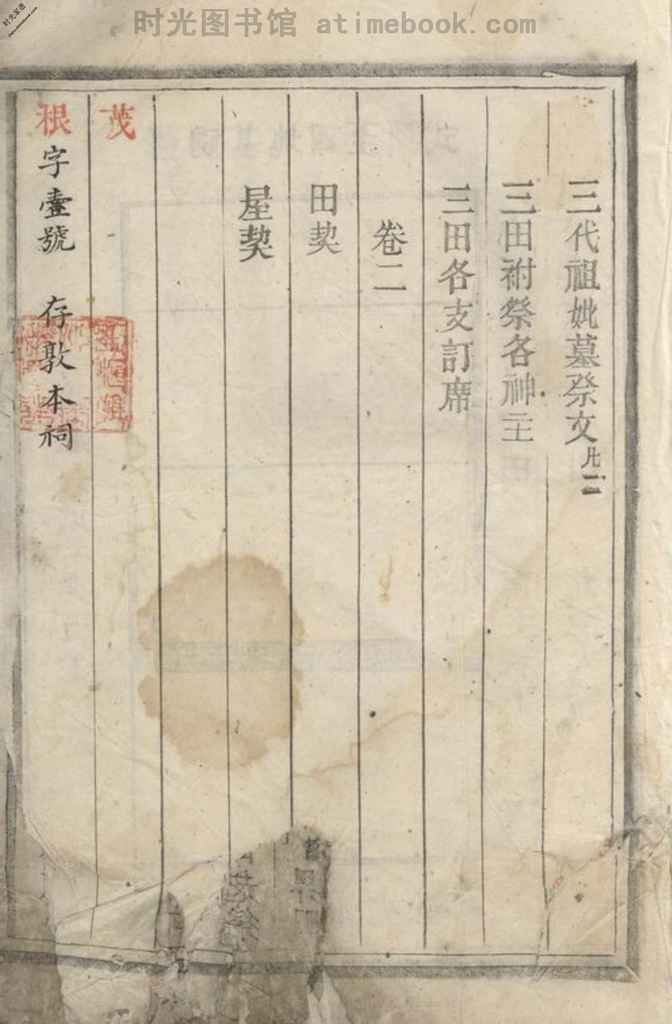 时光图书馆 atimebook.com
三代祖妣墓祭文凡二
三田祔祭各神主
三田各支訂席
卷二
田契
屋契
茂
根字壹號 存敦本祠